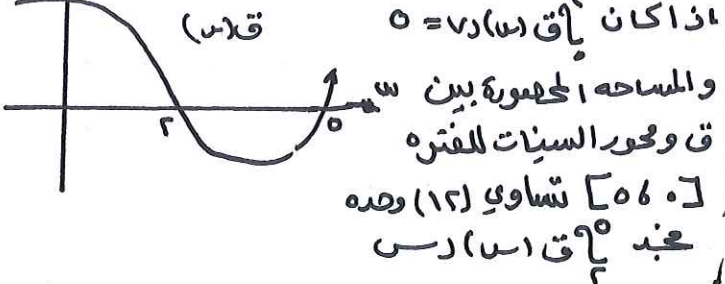 اذا كان ∫ ق(س) دس = ٥
والمساحه المحصورة بين
ق ومحور السينات للفتره
[٥،٠] تساوي (١٢) وحده
جد ∫ ق(س) دس
٥
٢
ق(س)
س
٢
٥